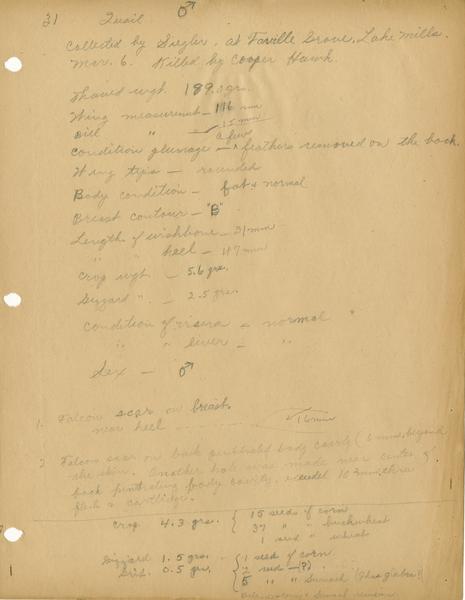 31 Quail ♂
Collected by Siegler, at Faville Grove, Lake Mills.
Mar. 6. Killed by Cooper Hawk.
Thawed wght. 189.0 grs.
Wing measurement – 116 mm
Bill " – 15 mm
a few
Condition plumage – feathers removed on the back.
Wing tips – rounded
Body condition – fat & normal
Breast contour – "B"
Length of wishbone – 31 mm
" " heel – 47 mm
Crop wght – 5.6 grs.
Gizzard " – 2.5 grs.
Condition of visera – normal
" " liver – "
Sex – ♂
1. Falcon scar on breast
near heel 16 mm
2. Falcon scar on back penetrated body cavity ( 6 mm beyond
the skin. Another hole was made near center of
back penetrating body cavity. 10 3 mm thru
flesh & cartlidge.
Crop 4.3 grs. { 15 seeds of corn
37 " " buckwheat
1 seed " wheat
Gizzard 1.5 grs. – { 1 seed of corn
Grit 0.5 grs. 2 seed – (?)
5 " " Sumach (Rhus glabra)